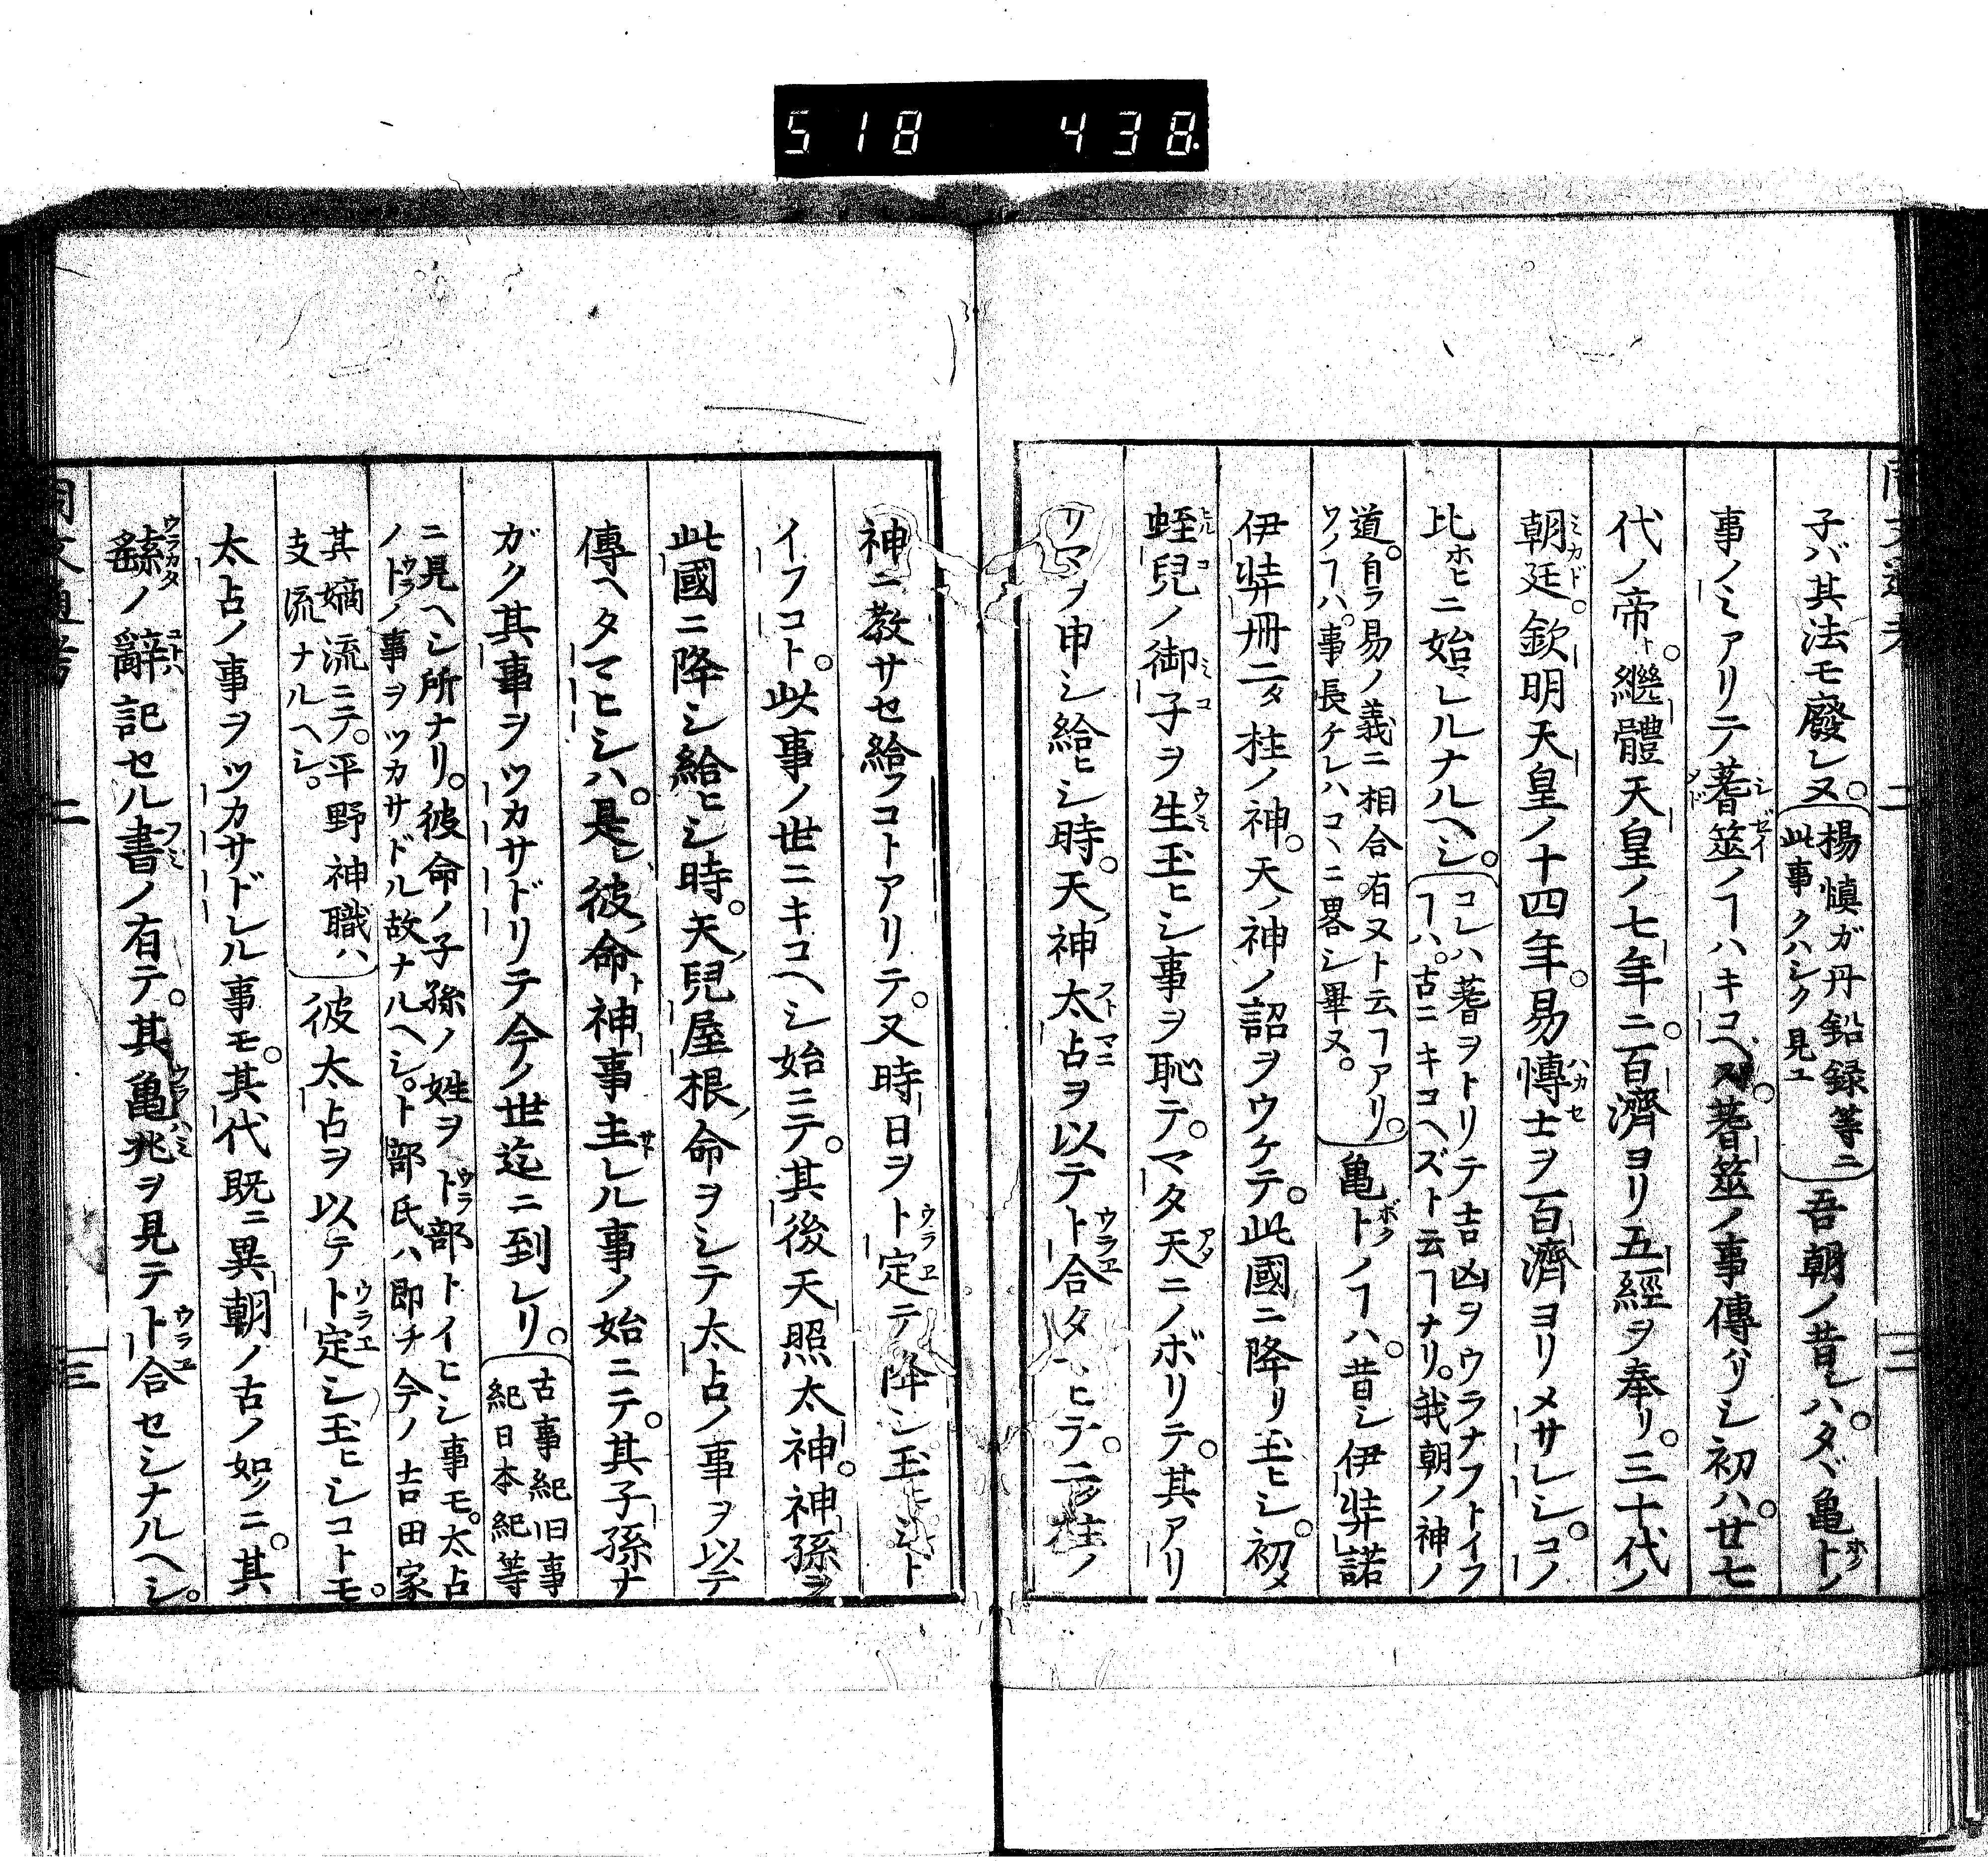 518 438
子バ其法モ廢レヌ。楊慎ガ丹鉛録等ニ此事クハシク見ユ 吾朝ノ昔シハ。タヾ亀卜ノ
事ノミアリテ蓍筮ノヿハキコヘズ。蓍筮ノ事傳ハリシ初ハ。廿七
代ノ帝ト。繼體天皇ノ七年ニ。百濟ヨリ五經ヲ奉リ。三十代ノ
朝廷。欽明天皇ノ十四年。易愽士ヲ百濟ヨリメサレシ。コノ
比ホヒニ始マレルナルヘシ。コレハ蓍ヲトリテ吉凶ヲウラナフトイフヿハ。古ニキコヘズト云ヿナリ。我朝ノ神ノ
道。自ラ易ノ義ニ相合有又ト云フヿアリ。ソノヿハ。事長ケレハコヽニ畧シ畢ヌ。 亀卜ノヿハ。昔シ伊弉諾
伊弉冊二タ柱ノ神。天ノ神ノ詔ヲウケテ。此國ニ降リ玉ヒシ。初メ
蛭兒ノ御子ヲ生玉ヒシ事ヲ恥テ。マタ天ニノボリテ。其アリ
サマヲ申シ給ヒシ時。天ノ神太占ヲ以テ卜合タマヒテ。二タ柱ノ
神ニ教サセ給フコトアリテ。又時日ヲ卜定テ降シ玉ヒシト
イフコト。此事ノ世ニキコヘシ始ニテ。其後天照太神。神孫ヲ
此國ニ降シ給ヒシ時。天ノ兒屋根ノ命ヲシテ太占ノ事ヲ以テ
傳ヘタマヒシハ。是レ彼ノ命ト神事主レル事ノ始ニテ。其子孫ナ
ガク其事ヲツカサドリテ今ノ世迄ニ到レリ。古事紀旧事紀日本紀等
ニ見ヘシ所ナリ。彼命ノ子孫ノ姓ヲ卜部トイヒシ事モ。太占ノ卜ノ事ヲツカサドル故ナルヘシ。卜部氏ハ即チ今ノ吉田家
其嫡流ニテ。平野神職ハ支流ナルヘシ。 彼太占ヲ以テ卜定シ玉ヒシコトモ。
太占ノ事ヲツカサドレル事モ。其代既ニ異朝ノ古ノ如クニ。其
繇ノ辭記セル書ノ有テ。其亀兆ヲ見テ卜合セシナルヘシ。
同文通考 二 三